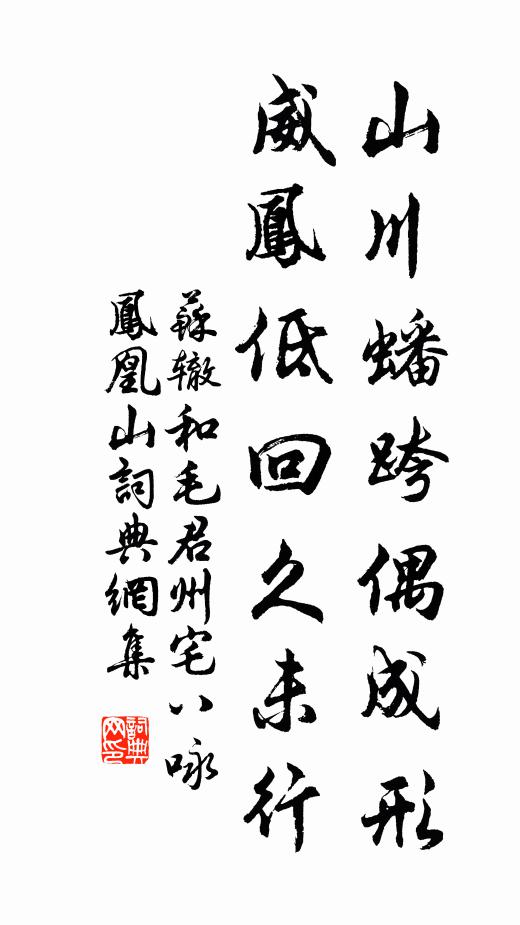 山川蟠跨偶成形
威鳳低回久未行
蘇辙和毛君州宅八咏
鳳凰山詞典網集
詞典
网印